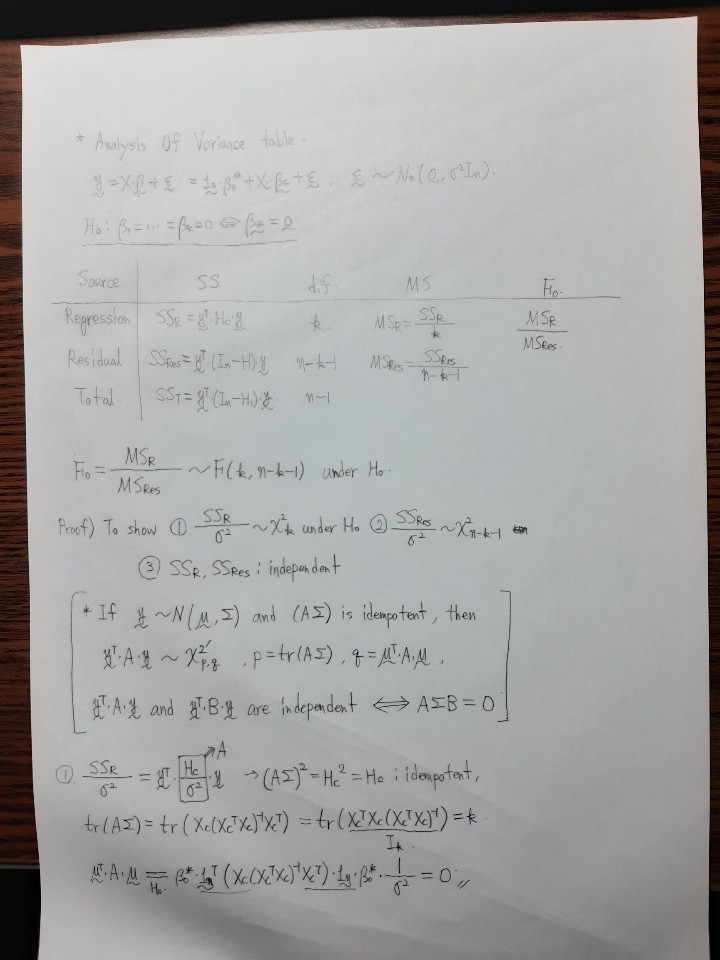 * Analysis Of Variance table.
y = X·β + ε = 1n·β0* + Xc·βc + ε, ε ~ Nn(0, σ²In).
H0: β1 = ... = βk = 0 ⇔ βc = 0
Source SS d.f. MS F0.
Regression SSR = yᵀ·Hc·y k MSR = SSR/k MSR/MSRes.
Residual SSRes = yᵀ·(In-H)·y n-k-1 MSRes = SSRes/n-k-1
Total SST = yᵀ·(In-H1)·y n-1
F0 = MSR/MSRes ~ F(k, n-k-1) under H0.
Proof) To show ①. SSR/σ² ~ χ²k under H0 ② SSRes/σ² ~ χ²n-k-1
③ SSR, SSRes : independent
* If y ~ N(μ, Σ) and (AΣ) is idempotent, then
yᵀ·A·y ~ χ²'p,q, p = tr(AΣ), q = μᵀ·A·μ,
yᵀ·A·y and yᵀ·B·y are independent ⇔ AΣB = 0
①. SSR/σ² = yᵀ·Hc/σ²·y → A → (AΣ)² = Hc² = Hc : idempotent,
tr(AΣ) = tr(Xc(XcᵀXc)⁻¹Xcᵀ) = tr(XcᵀXc(XcᵀXc)⁻¹) = k
Ik
μᵀ·A·μ = H0 β0*·1yᵀ(Xc(XcᵀXc)⁻¹Xcᵀ)·1y·β0*·1/σ² = 0 //